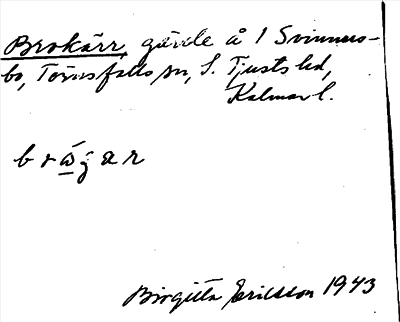 Brokärr, gärde å 1 Svinners-
bo, Törnsfalls sn, S. Tjusts hd,
Kalmar l.
Birgitta Ericsson 1943